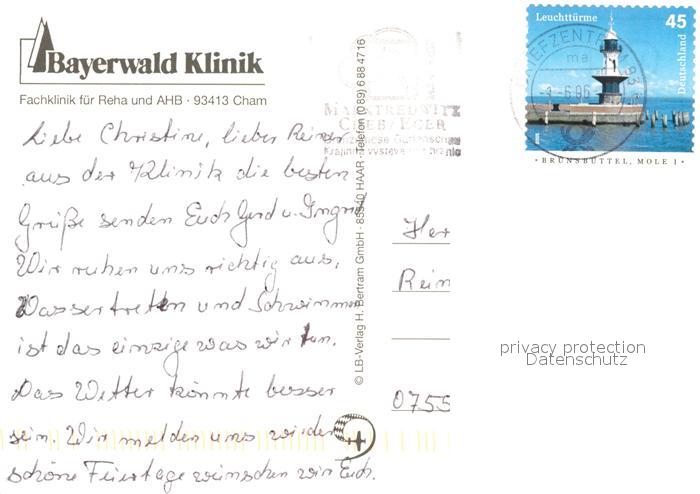 Bayerwald Klinik
Fachklinik für Reha und AHB · 93413 Cham
Liebe Christine, lieber Reiner
aus der Klinik die besten
Grüße senden Euch Gerd u. Ingrid
Wir ruhen uns richtig aus,
Wassertreten und Schwimmen
ist das einzige was wir tun.
Das Wetter könnte besser
sein. Wir melden uns wieder
schöne Feiertage wünschen wir Euch.
© LB-Verlag H. Bertram GmbH · 85540 HAAR · Telefon (089) 688 4716
MARKTREDWITZ
CHEB/EGER
Grenzenlose Gartenschau
Leuchttürme
45
Deutschland
BRIEFZENTRUM 93
-6.06
· BRUNSBÜTTEL, MOLE 1 ·
Her
Rein
0755
privacy protection
Datenschutz